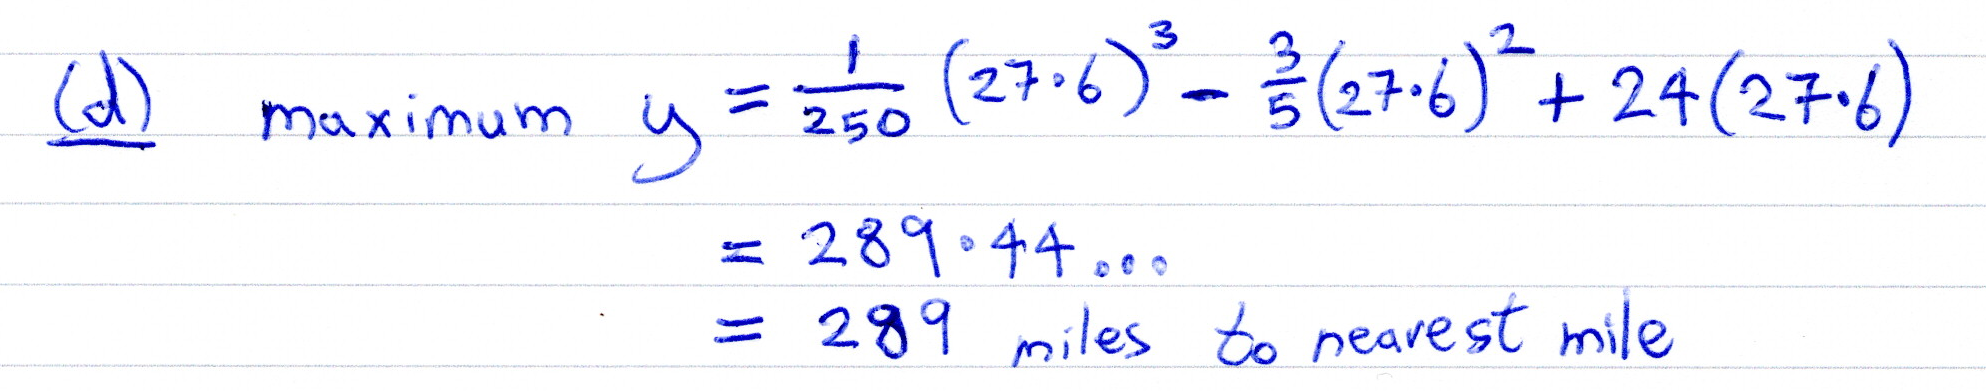 (d) maximum y = 1/250 (27·6)³ - 3/5 (27·6)² + 24(27·6)
= 289·44...
= 289 miles to nearest mile